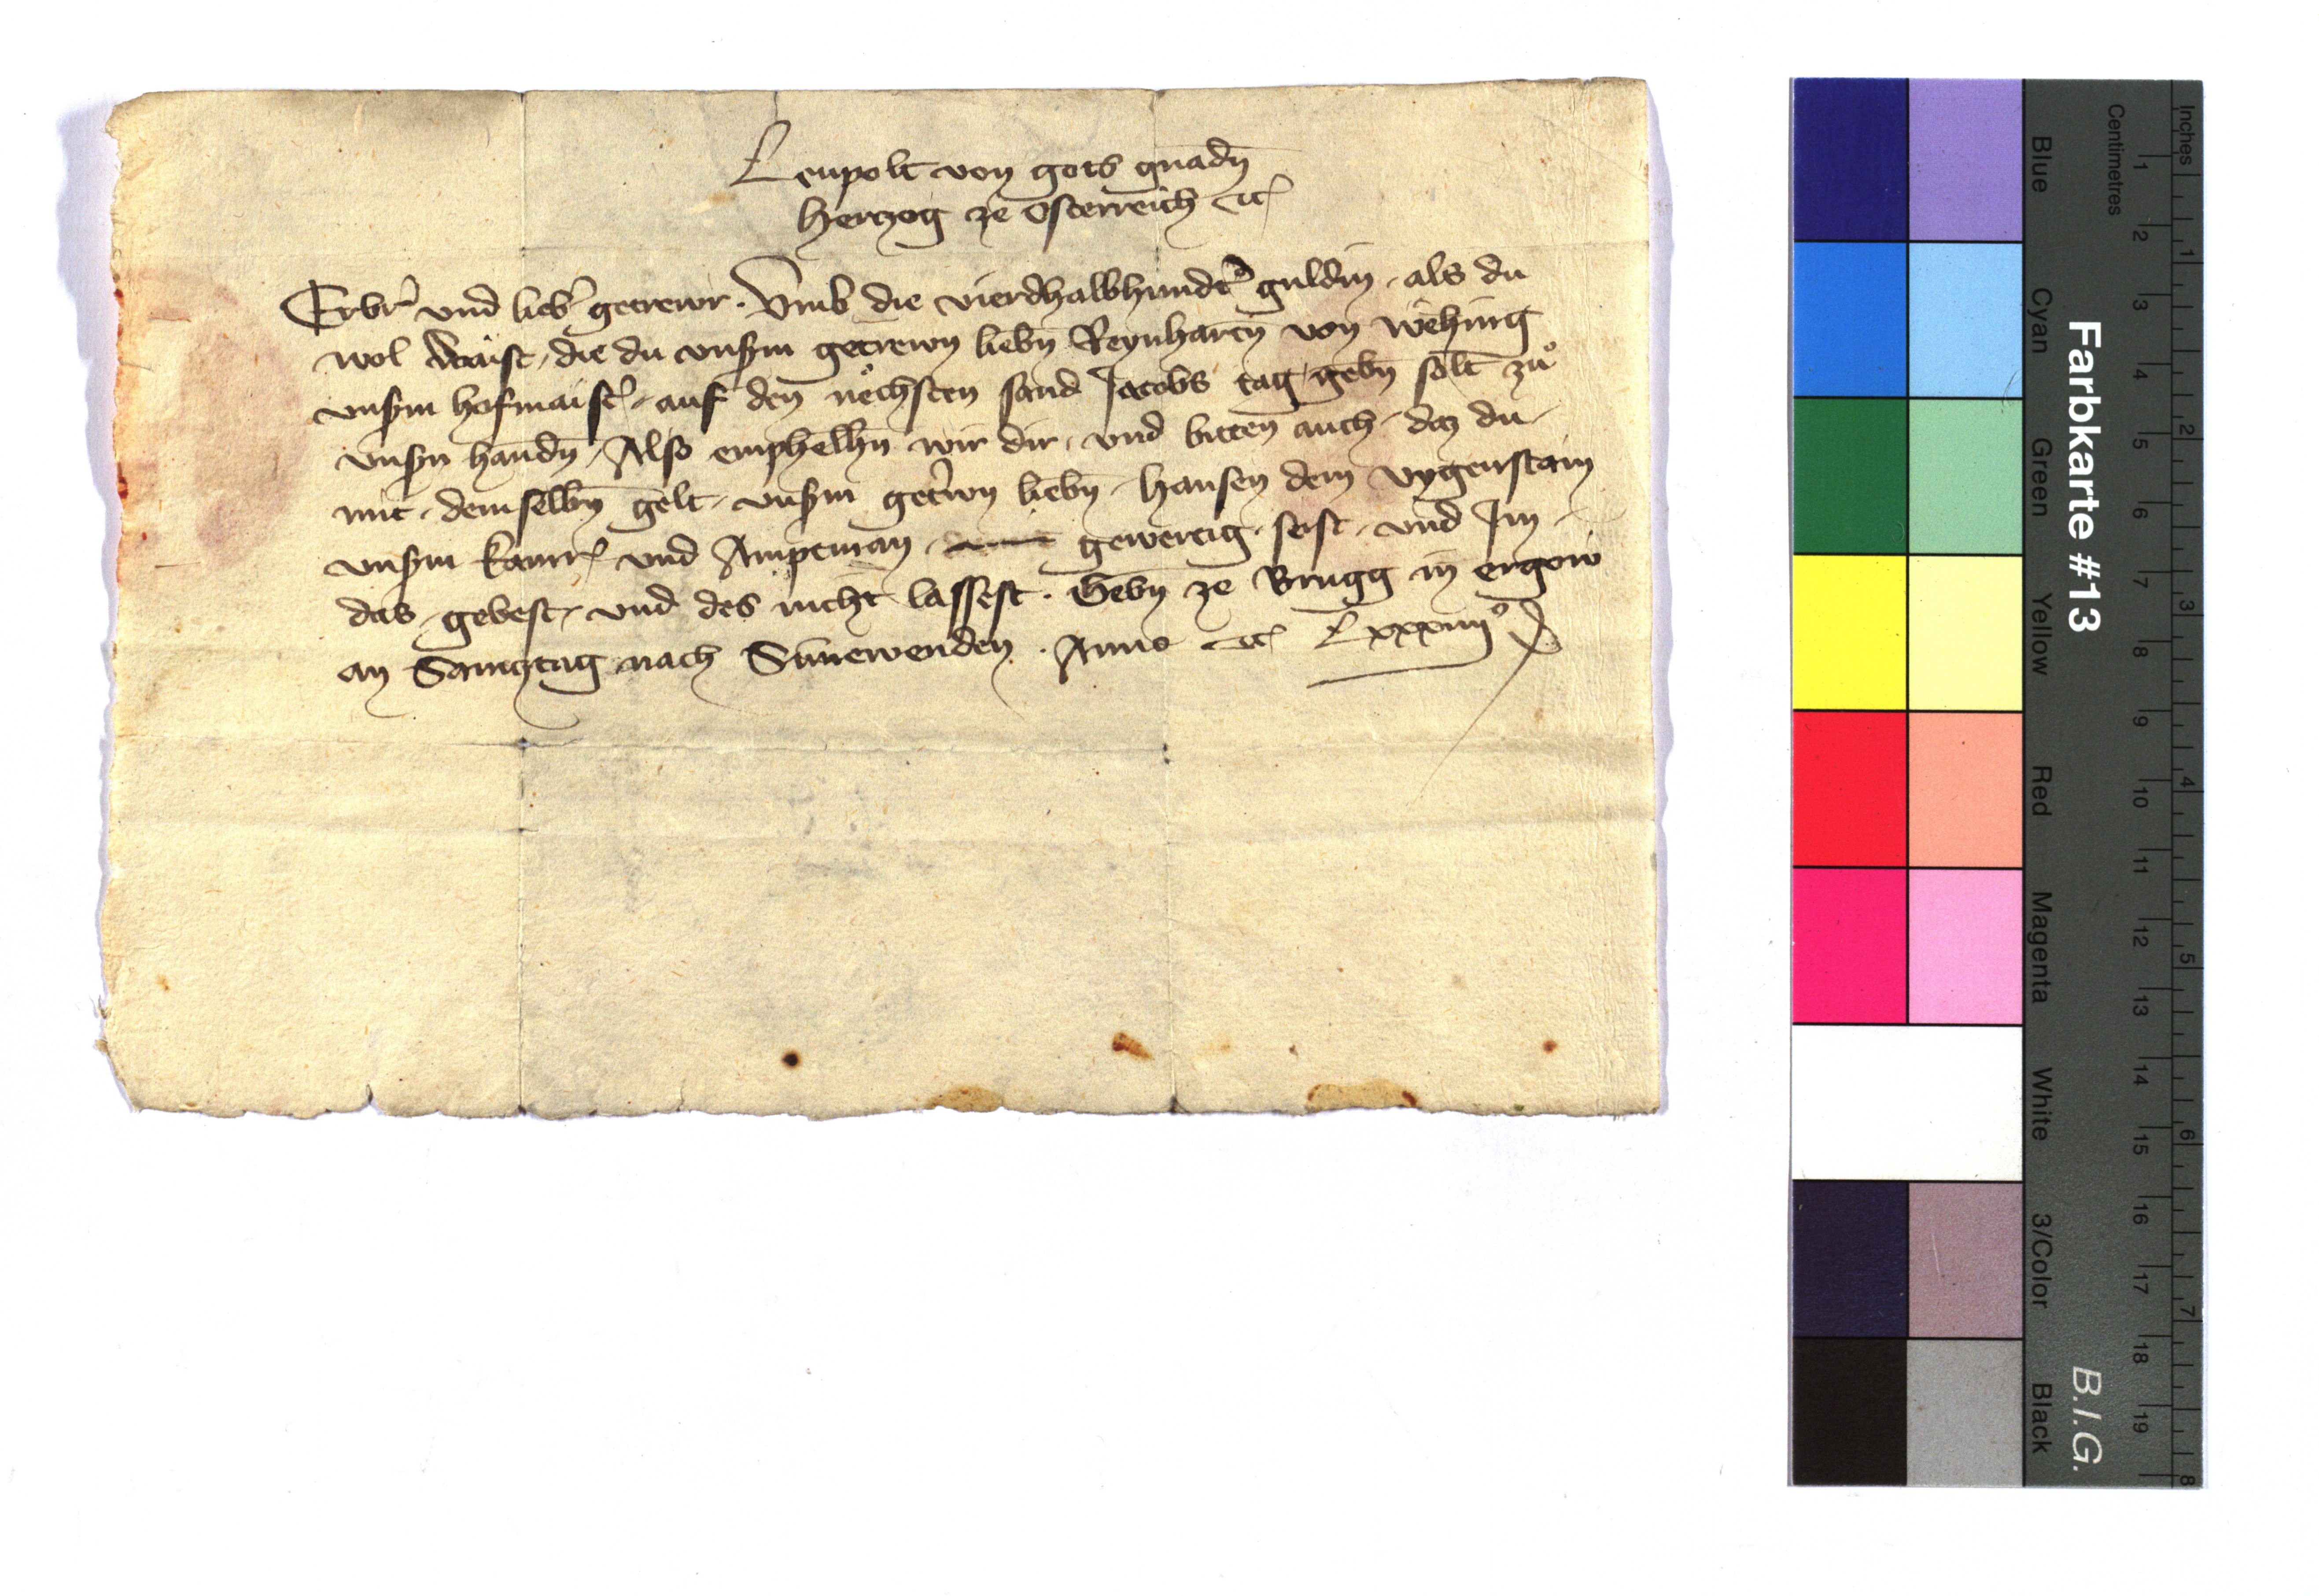 Leupolt von gots gnadn̄
Hertzog ze Osterreich etc̄
Erbr̄ und lieb̄ getrewr. Vmb die vierdhalbhundt̄ guldin, als du
wol waist, die du vnsm̄ getrewn liebn̄ Reynhartn̄ von wehing
vnsm̄ hofmaist̄, auf den nëchsten sand Jacobs tag gebn̄ solt zů
vnsn̄ handn̄, Also emphelhn̄ wir dir, vnd bitten auch, daz du
mit demselbn̄ gelt, vnsm̄ getrwn liebn̄, hansen dem vygenstain
vnsm̄ kamr̄ vnd Amptman, gewertig seist, vnd Im
das gebest, vnd des nicht lassest. Gebn̄ ze Brugg in ergow
an Samcztag nach Sunewenden. Anno etc̄ Lxxxiiiiº
Farbkarte #13
B.I.G.
Inches 1 2 3 4 5 6 7 8
Centimetres 1 2 3 4 5 6 7 8 9 10 11 12 13 14 15 16 17 18 19
Blue Cyan Green Yellow Red Magenta White 3/Color Black